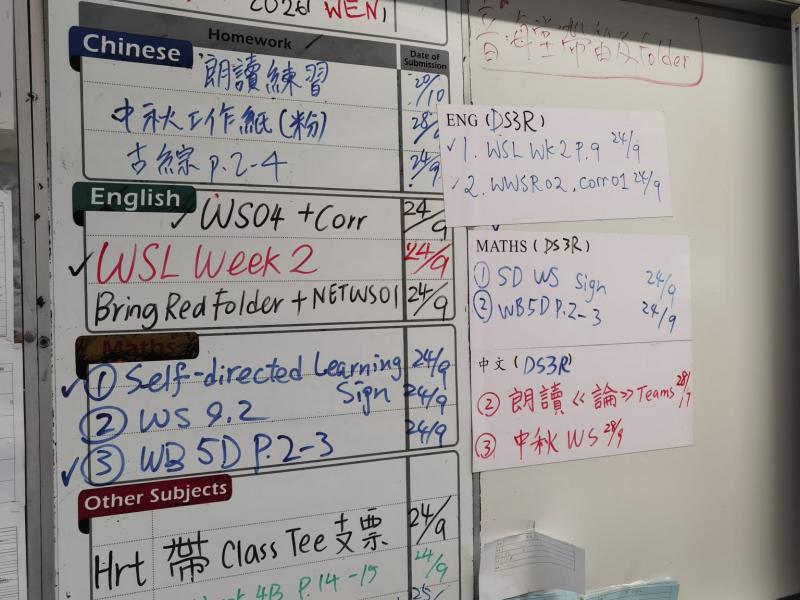 2026 WEN,
Homework
Date of Submission
Chinese
朗讀練習 20/10
中秋工作紙(粉) 28/9
古綜 p.2-4 24/9
English
✓ WS04 + Corr 24/9
✓ WSL Week 2 24/9
Bring Red Folder + NETWS01 24/9
Maths
✓ ① Self-directed Learning Sign 24/9
② WS 9.2 24/9
✓ ③ WB 5D P.2-3 24/9
Other Subjects
Hrt 帶 Class Tee 支票 24/9
4B P.14-15 24/9
25/
音 帶 及 Folder
ENG (DS3R)
✓ 1. WSL WK2 P.9 24/9
✓ 2. WWSR02, corr01 24/9
MATHS (DS3R)
① SD WS Sign 24/9
② WB5D P.2-3 24/9
中文 (DS3R)
② 朗讀 《論》 Teams
③ 中秋 WS 28/9